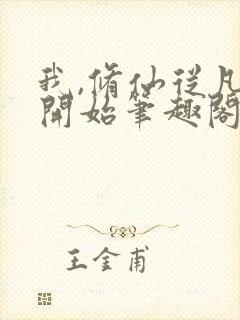 我,脩仙從凡
開始筆趣閣
王金甫